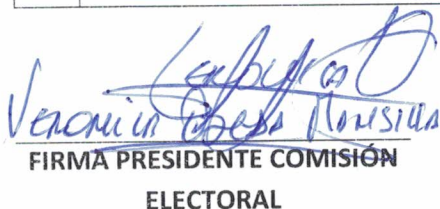 VERONICA OJEDA MANSILLA
FIRMA PRESIDENTE COMISIÓN
ELECTORAL